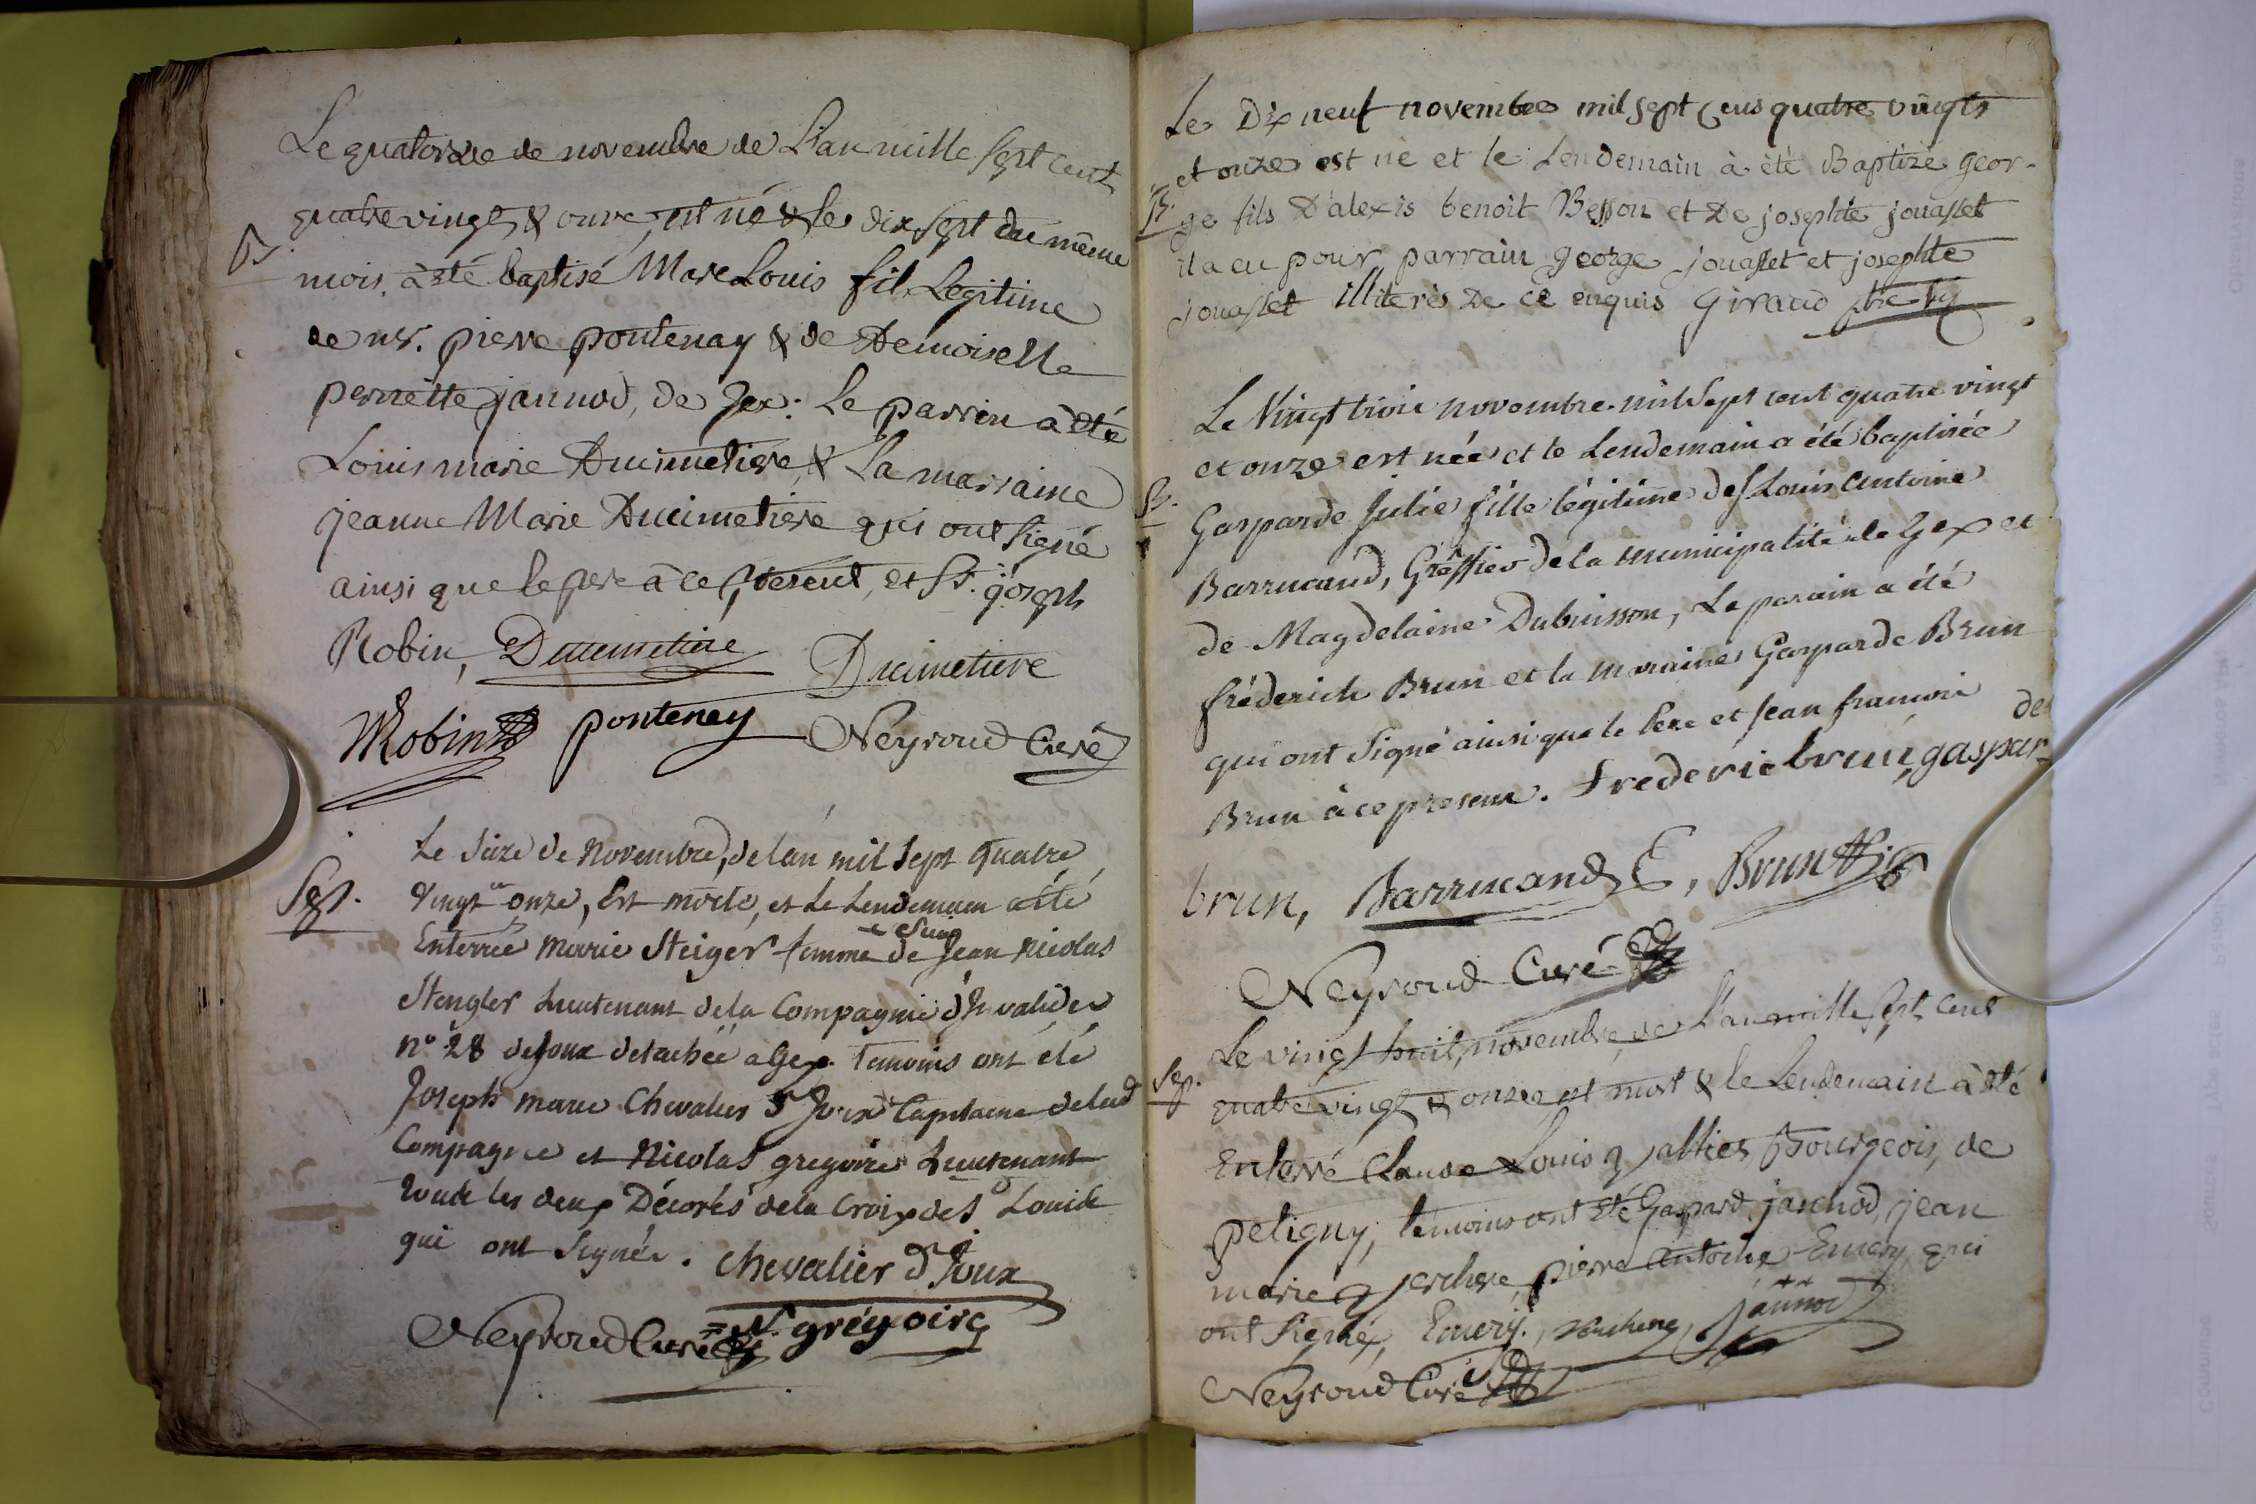 Le quatorze de novembre de L'an mille sept cent
quatre vingt & onze, est né & le dix sept du même
B.
mois, à été baptisé Marc Louis fils Legitime
de mr. pierre pontenay & de Demoiselle
pernette jannod, de Gex: Le parrin à été
Louis marie Ducimetiere, & La marraine
jeanne Marie Ducimetiere qui ont signé
ainsi que le pere à ce présent, et Sr. joseph
Robin, Ducimetiere Ducimetiere
Robin pontenay Neyroud Curé
Le Seize de Novembre, de lan mil sept quatre
Sep.
vingt onze, Est morte, et Le Lendemain a été
Enterrée Marie Steiger femme de Jean Nicolas
Stengler Lieutenant de la Compagnie d'Invalides
n° 28 de Joux detachée a Gex. Temoins ont été
Joseph marie Chevalier d Joux Capitaine de lad
Compagnie et Nicolas gregoire Lieutenant
les deux Décorés de la Croix de St Louis
qui ont Signés. Chevalier d Joux
Neyroud Curé N. grégoire
Le Dix neuf novembre mil sept Cens quatre vingts
et onze est né et le Lendemain à été Baptizé geor-
B.
ge fils D'alexis benoit Besson et De josephte jouasset
il a eu pour parrain george jouasset et josephte
jouasset illiterés de ce enquis Giraud
Le Vingt trois novembre mil Sept cent quatre vingt
et onze est née et le Lendemain a été baptisée
B.
Gasparde Julie fille légitime de Louis Antoine
Barrucand, Gréffier de la municipalité de Gex et
de Magdelaine Dubuisson, Le parain a été
fréderich Brun et la maraine Gasparde Brun
qui ont Signé ainsi que le Pere et Jean francois
Brun à ce present. Frederic brun, gaspar-
de
brun, Barrucand, Brun
Neyroud Curé
Le vingt huit, novembre de L'an mille sept cent
Sep.
quatre vingt & onze est mort & le Lendemain à été
Enterré Claude Louis Bourgeois, de
petigny, témoins ont été Gaspard jannod, jean
marie pierre antoine Emery, qui
ont signé, Emery, jannod
Neyroud Curé